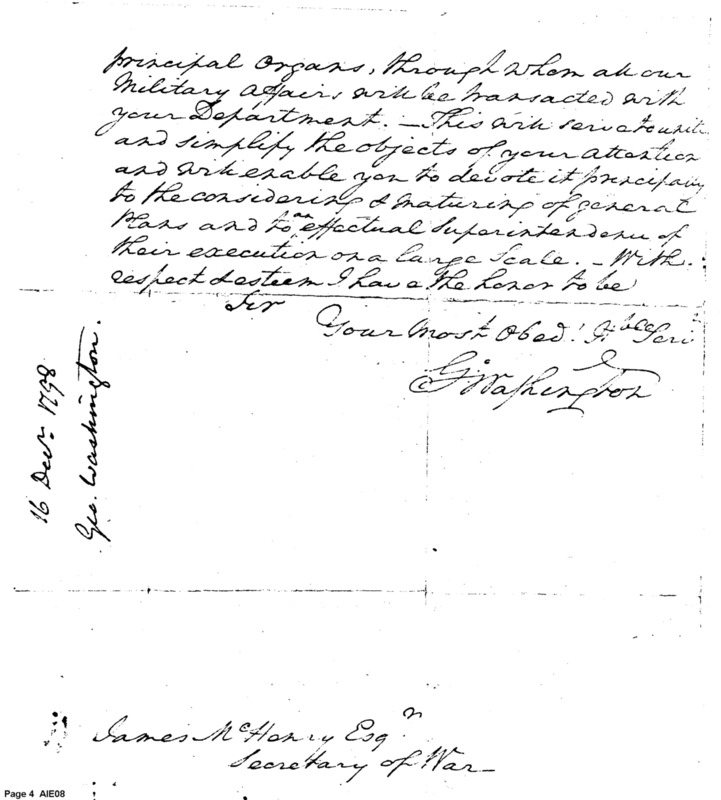 principal Organs, through whom all our
Military affairs will be transacted with
your Department. — This will serve to unite
and simplify the objects of your attention
and will enable you to devote it principally
to the considering & maturing of general
Plans and to an effectual Superintendence of
their execution on a large Scale. — With
respect & esteem I have the honor to be
Sir
Your Most Obedt. Hble Servt
Go: Washington
16 Decr. 1798
Geo. Washington.
James McHenry Esqr
Secretary of War —
Page 4 AIE08